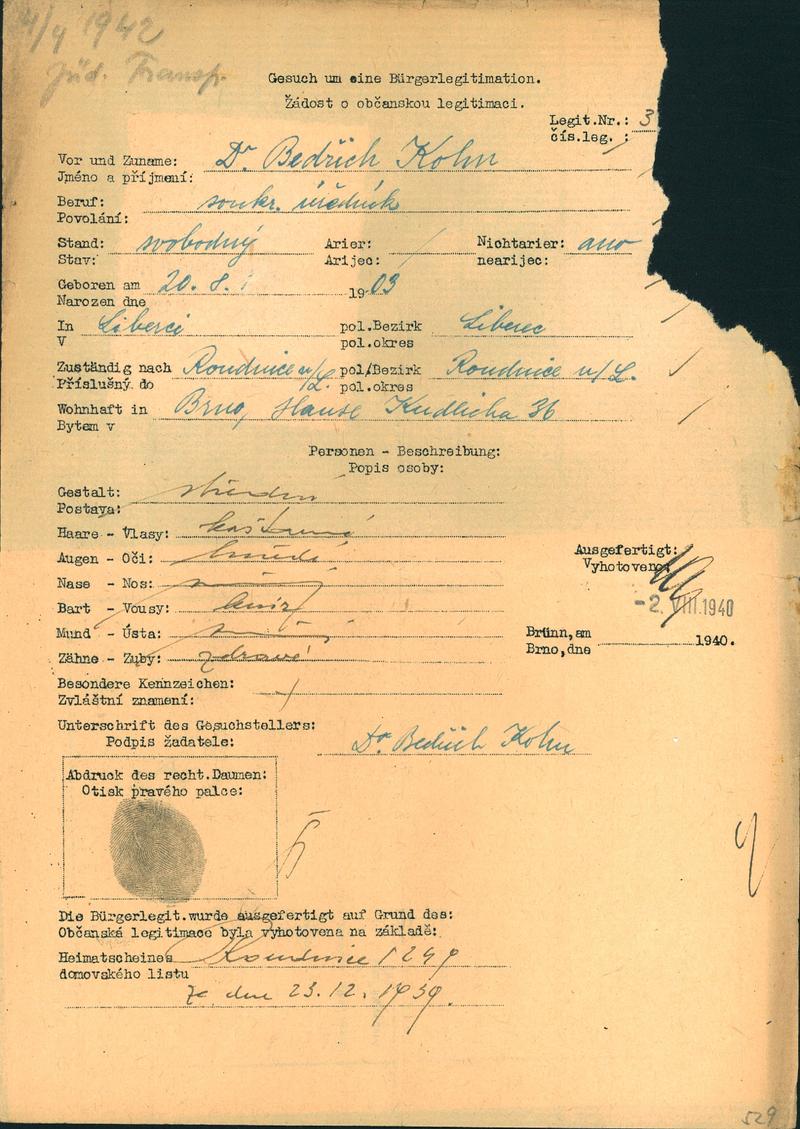 4/4 1942
Jüd. Transp.
Gesuch um eine Bürgerlegitimation.
Žádost o občanskou legitimaci.
Legit.Nr.: 3
čís.leg. :
Vor und Zuname: Dr. Bedřich Kohn
Jméno a příjmení:
Beruf: soukr. úředník
Povolání:
Stand: svobodný Arier: / Nichtarier: ano
Stav: Arijec: nearijec:
Geboren am 20. 8. 1903
Narozen dne
In Liberci pol.Bezirk Liberec
V pol.okres
Zuständig nach Roudnice n/L. pol/Bezirk Roudnice n/L.
Příslušný do pol.okres
Wohnhaft in Brno, Hanse Kudlicha 36
Bytem v
Personen - Beschreibung:
Popis osoby:
Gestalt: střední
Postava:
Haare - Vlasy: kaštanové
Augen - Oči: hnědé
Nase - Nos:
Bart - Vousy: knír
Mund - Ústa:
Zähne - Zuby: zdravé
Ausgefertigt:
Vyhotoveno:
-2. VIII. 1940
Brünn,am
Brno,dne 1940.
Besondere Kennzeichen: /
Zvláštní znamení:
Unterschrift des Gesuchstellers:
Podpis žadatele: Dr. Bedřich Kohn
Abdruck des recht.Daumen:
Otisk pravého palce:
Die Bürgerlegit.wurde ausgefertigt auf Grund des:
Občanská legitimace byla vyhotovena na základě:
Heimatscheines Roudnice 1249
domovského listu
ze dne 23.12.1939.
529